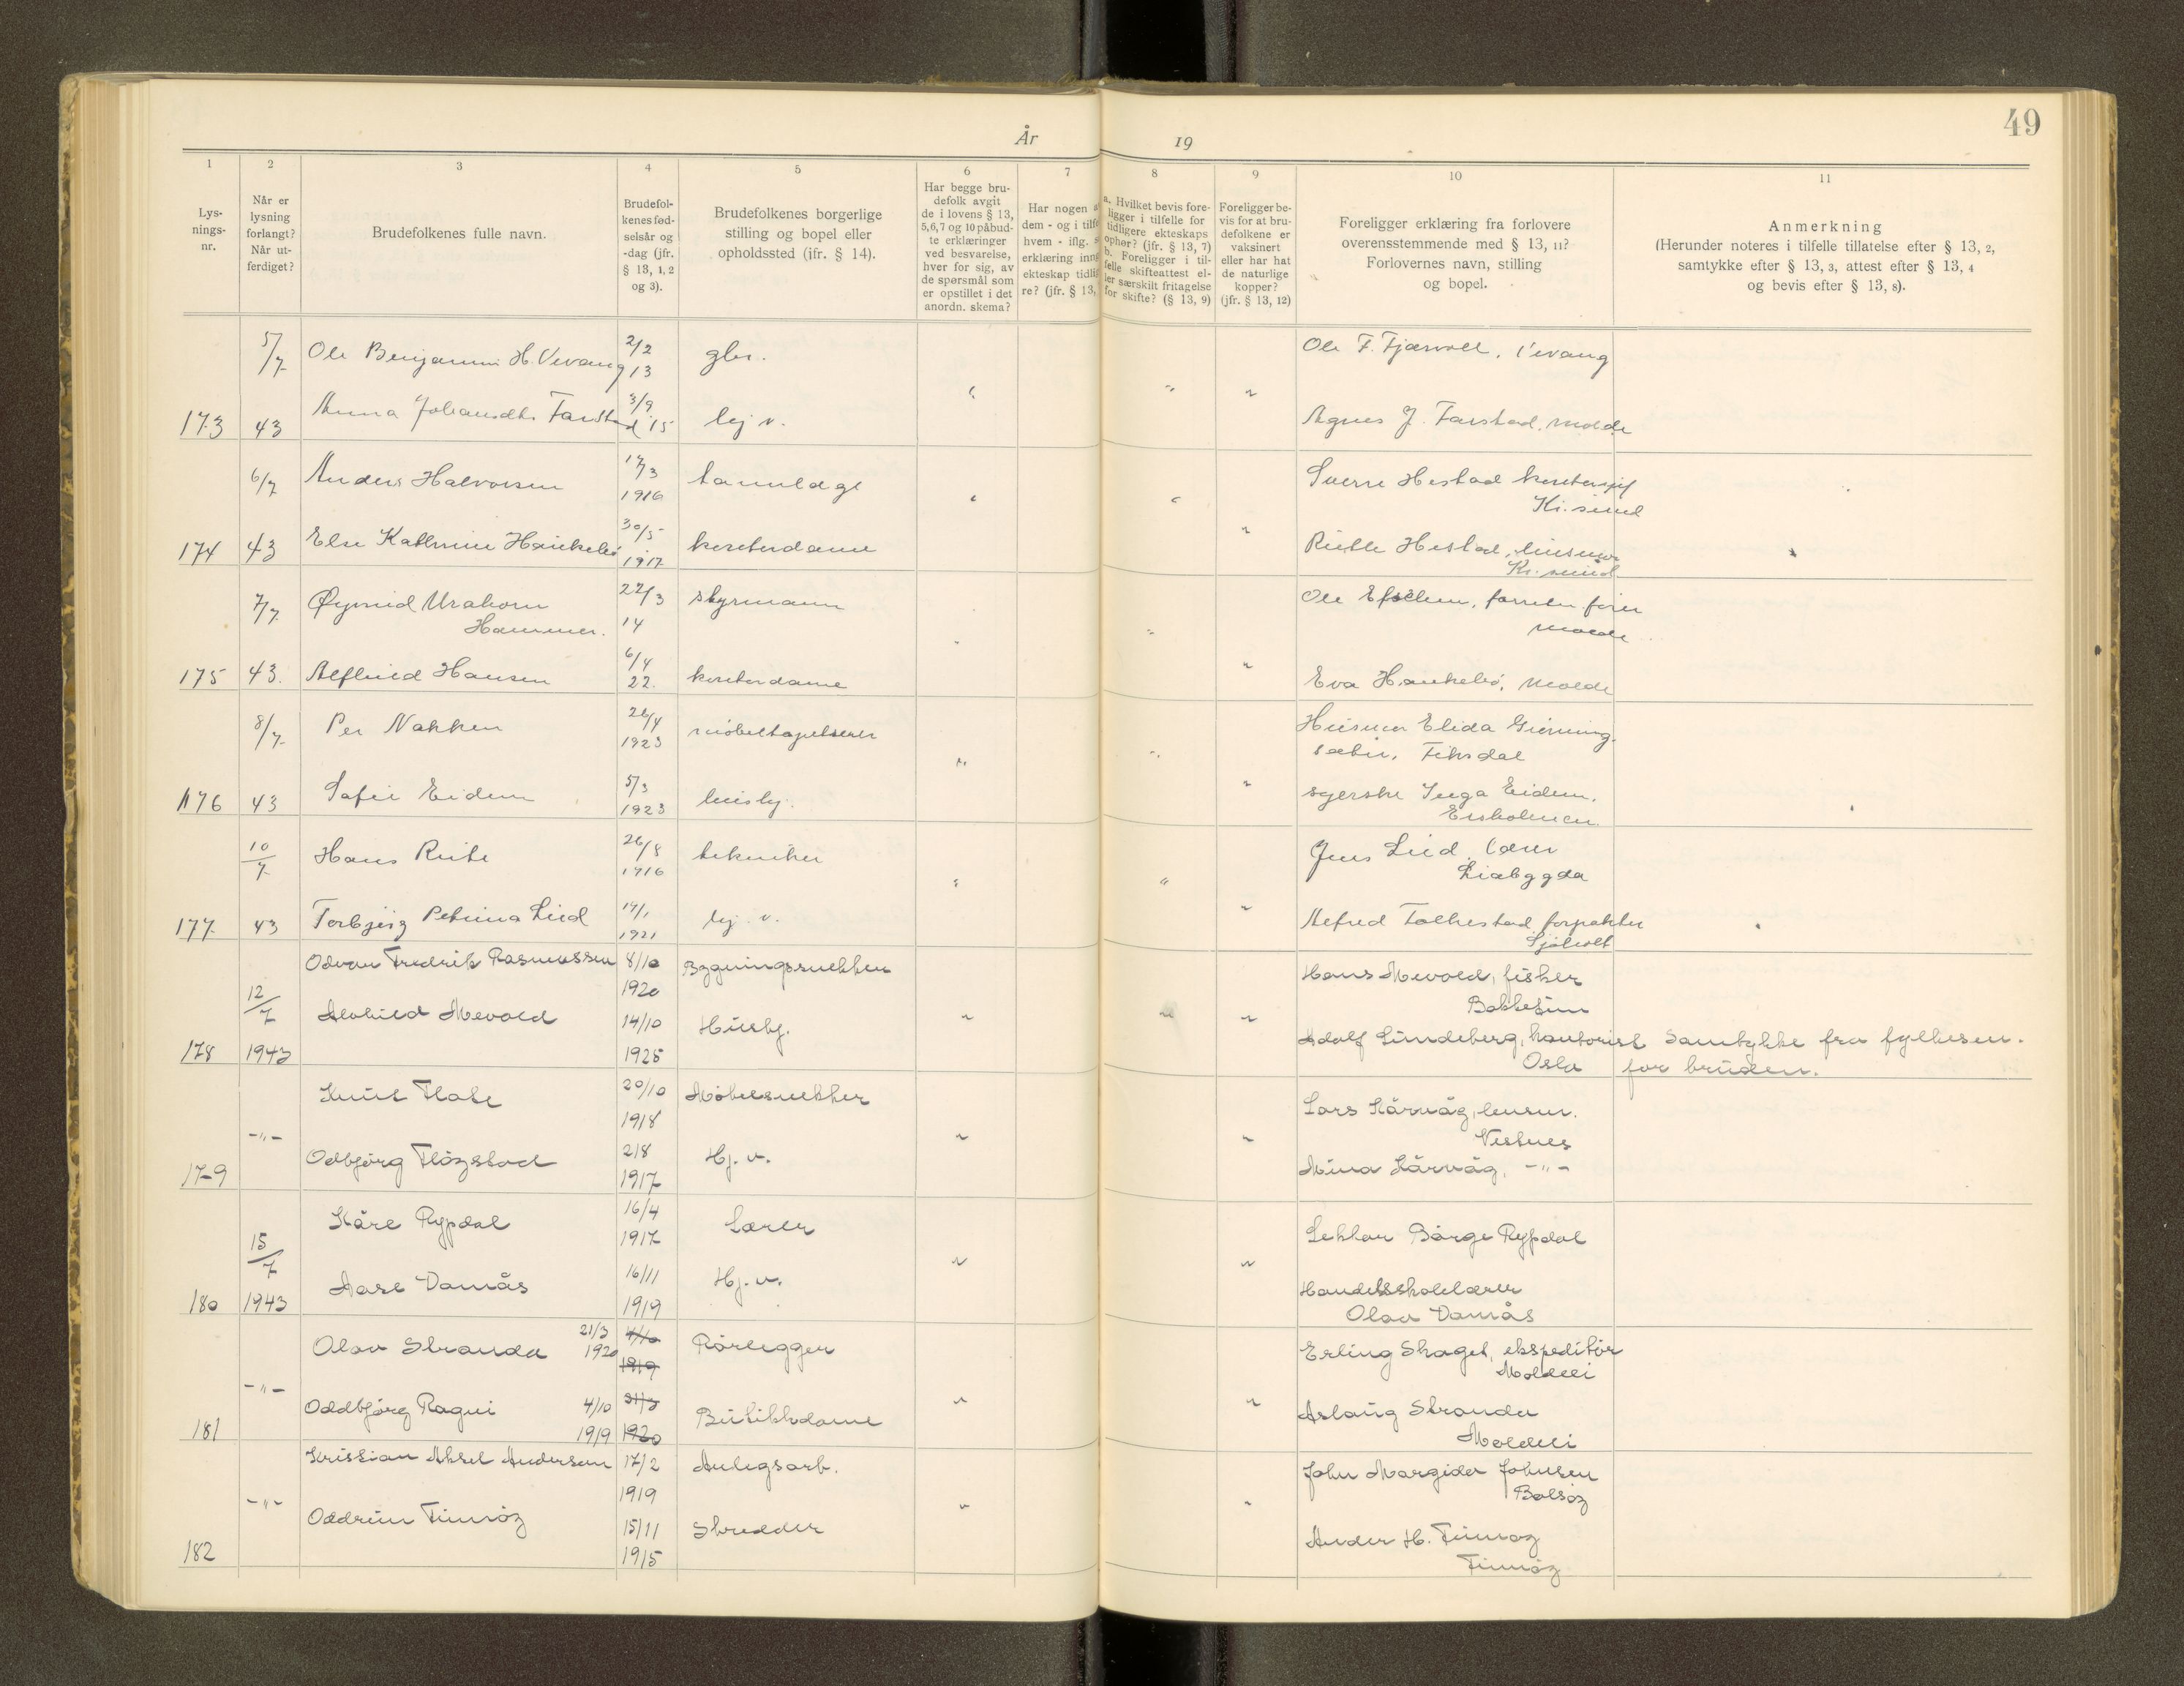 49
År 19
1 2 3 4 5 6 7 8 9 10 11
Lys-
nings-
nr.
Når er
lysning
forlangt?
Når ut-
ferdiget?
Brudefolkenes fulle navn.
Brudefol-
kenes fød-
selsår og
-dag (jfr.
§ 13, 1, 2
og 3).
Brudefolkenes borgerlige
stilling og bopel eller
opholdssted (jfr. § 14).
Har begge bru-
defolk avgit
de i lovens § 13,
5,6,7 og 10 påbud-
te erklæringer
ved besvarelse,
hver for sig, av
de spørsmål som
er opstillet i det
anordn. skema?
Har nogen a
dem - og i tilfe
hvem - iflg. s
erklæring inng
ekteskap tidlig
re? (jfr. § 13,
a. Hvilket bevis fore-
ligger i tilfelle for
tidligere ekteskaps
ophør? (jfr. § 13, 7)
b. Foreligger i til-
felle skifteattest el-
ler særskilt fritagelse
for skifte? (§ 13, 9)
Foreligger be-
vis for at bru-
defolkene er
vaksinert
eller har hat
de naturlige
kopper?
(jfr. § 13, 12)
Foreligger erklæring fra forlovere
overensstemmende med § 13, 11?
Forlovernes navn, stilling
og bopel.
Anmerkning
(Herunder noteres i tilfelle tillatelse efter § 13, 2,
samtykke efter § 13, 3, attest efter § 13, 4
og bevis efter § 13, 8).
5/7 Ole Benjamin H. Vevang 2/2 13 gbr. Ole F. Fjærvoll, Vevang
173 43 Anna Johansdtr. Farstad 3/9 15 hj v. Agnes J. Farstad, Molde
6/7 Anders Halvorsen 17/3 1916 tannlege Sverre Hestad kontorsjef
Kr.sund
174 43 Else Kathrine Haukebø 30/5 1917 kontordame Ruth Hestad, husmor
Kr. sund
7/7 Øyvind Urahorn 22/3 14 styrmann Ole , forretn.fører
Hammer. Molde
175 43. Alfhild Hansen 6/4 22. kontordame Eva Haukebø, Molde
8/7 Per Nakken 26/4 1923 møbeltapetserer Husmor Elida Grønning-
sæter, Fiksdal
176 43 Sofie Eidem 5/3 1923 hushj. syerske Inga Eidem,
10/7 Hans Reite 26/8 1916 tekniker Jens Lied, lærer
Liabygda
177 43 Torbjørg Petrina Lied 14/1 1921 hj. v. Alfred Tolkestad, forpakter
Sjøholt
Odvar Fredrik Rasmussen 8/10 1920 Bygningssnekker Hans Mevold, fisker
12/7 Alvhild Mevold 14/10 1925 Hushj.
178 1943 Adolf Lundeberg, kontorist Samtykke fra fylkesm.
Oslo for bruden.
Knut Flate 20/10 1918 Møbelsnekker Lars Kårvåg, lensm.
Vestnes
-"- Odbjørg Fløgstad 2/8 1917 Hj. v. Mina Kårvåg, -"-
179
Kåre Rypdal 16/4 1917 Lærer Lektor Børge Rypdal
15/7
180 1943 Aase Damås 16/11 1919 Hj. v. Handelsskolelærer
Olav Damås
Olav Stranda 21/3 1920 4/10 1919 Rørlegger Erling Skaget, ekspeditør
Moldeli
-"- Oddbjørg Ragni 4/10 1919 21/3 1920 Butikkdame Aslaug Stranda
181 Moldeli
Kristian Aksel Andersen 17/2 1919 Anlegsarb. John Margido Johnsen
Bolsøy
-"- Oddrun Finnøy 15/11 1915 Skredder Ander H. Finnøy
182 Finnøy